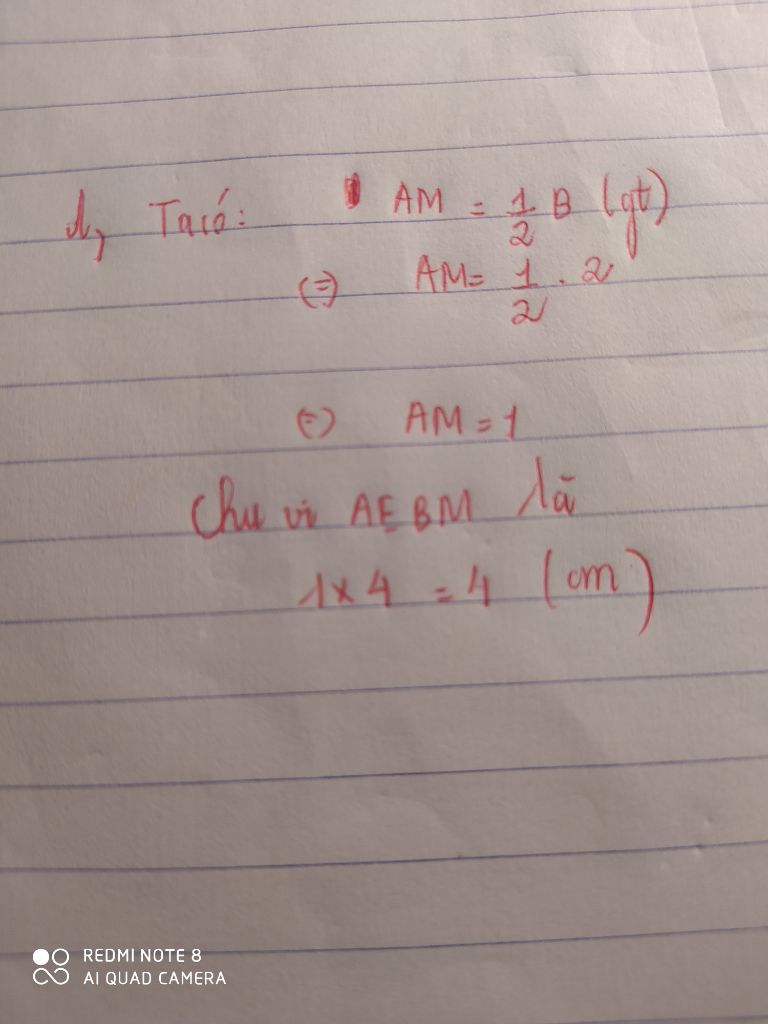 d, Ta có: AM = 1/2 B (gt)
(=) AM = 1/2 . 2
(=) AM = 1
Chu vi AEBM là
1 x 4 = 4 (cm)
REDMI NOTE 8
AI QUAD CAMERA